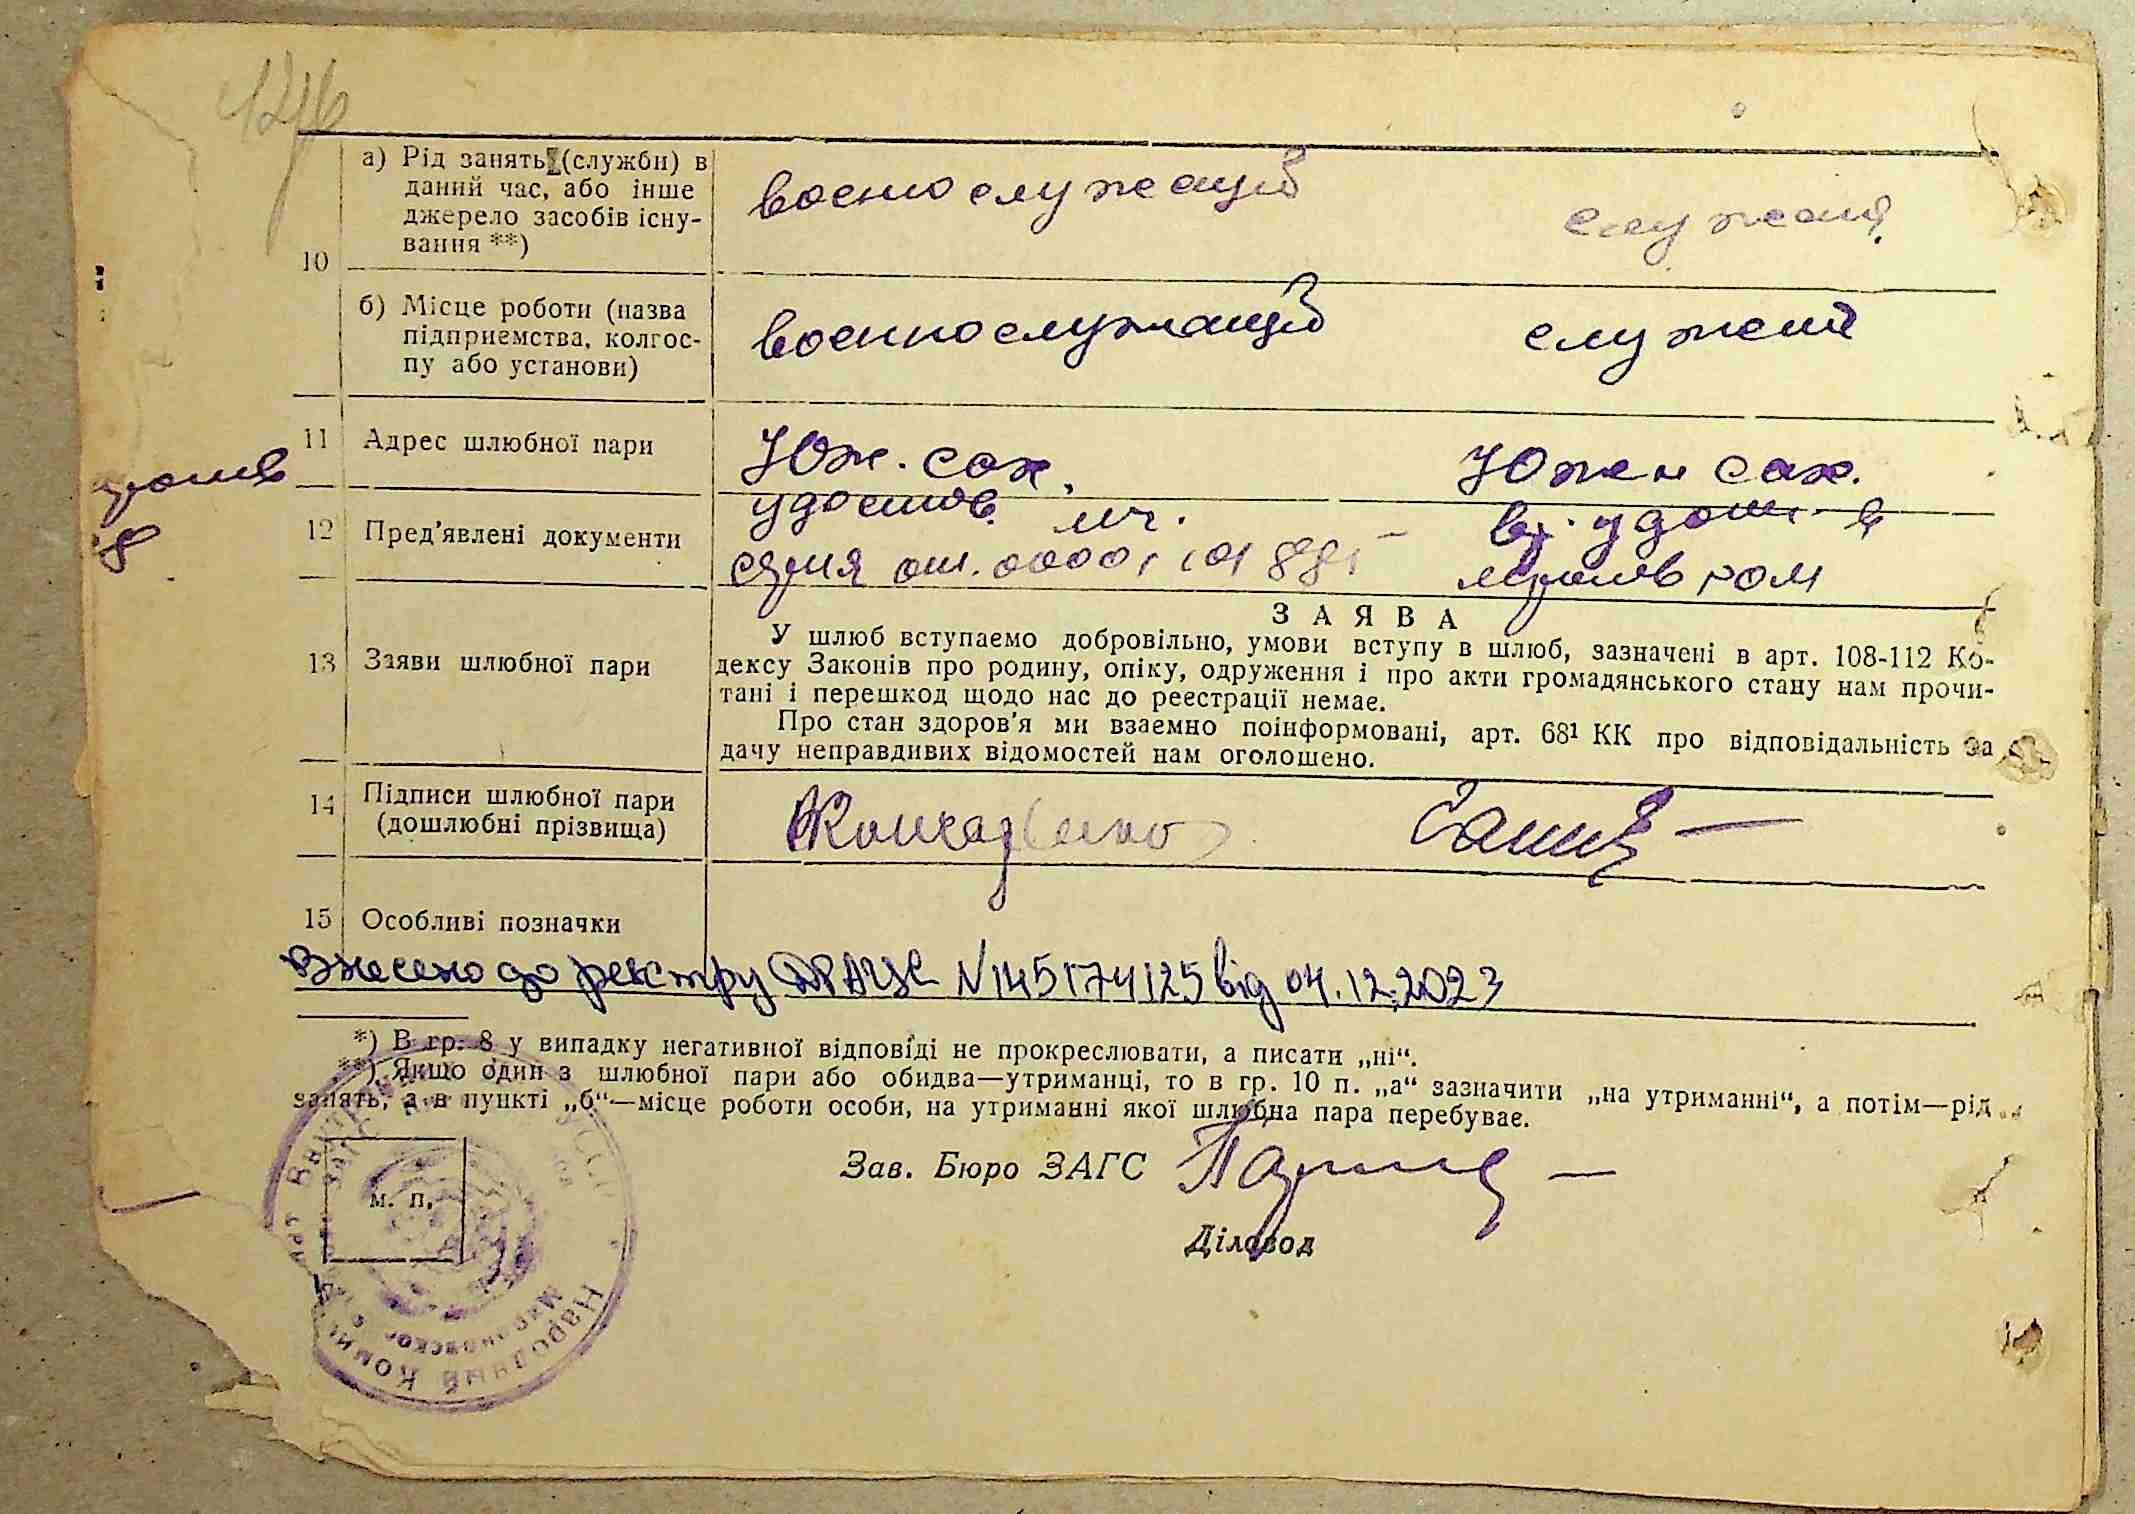 10
а) Рід занять (служби) в
даний час, або інше
джерело засобів існу-
вання **)
военнослужащий
служащ.
б) Місце роботи (назва
підприємства, колгос-
пу або установи)
военнослужащий
служащ
11 Адрес шлюбної пари
Юж. сах.
Южн сах.
12 Пред'явлені документи
удостов.
серия
13 Заяви шлюбної пари
ЗАЯВА
У шлюб вступаємо добровільно, умови вступу в шлюб, зазначені в арт. 108-112 Ко-
дексу Законів про родину, опіку, одруження і про акти громадянського стану нам прочи-
тані і перешкод щодо нас до реєстрації немає.
Про стан здоров'я ми взаємно поінформовані, арт. 68¹ КК про відповідальність за
дачу неправдивих відомостей нам оголошено.
14 Підписи шлюбної пари
(дошлюбні прізвища)
15 Особливі позначки
Внесено до реєстру ДРАЦС N145174125 від 04.12.2023
*) В гр. 8 у випадку негативної відповіді не прокреслювати, а писати „ні“.
**) Якщо один з шлюбної пари або обидва—утриманці, то в гр. 10 п. „а“ зазначити „на утриманні“, а потім—рід
занять, а в пункті „б“—місце роботи особи, на утриманні якої шлюбна пара перебуває.
Зав. Бюро ЗАГС
м. п.
Діловод
Народный